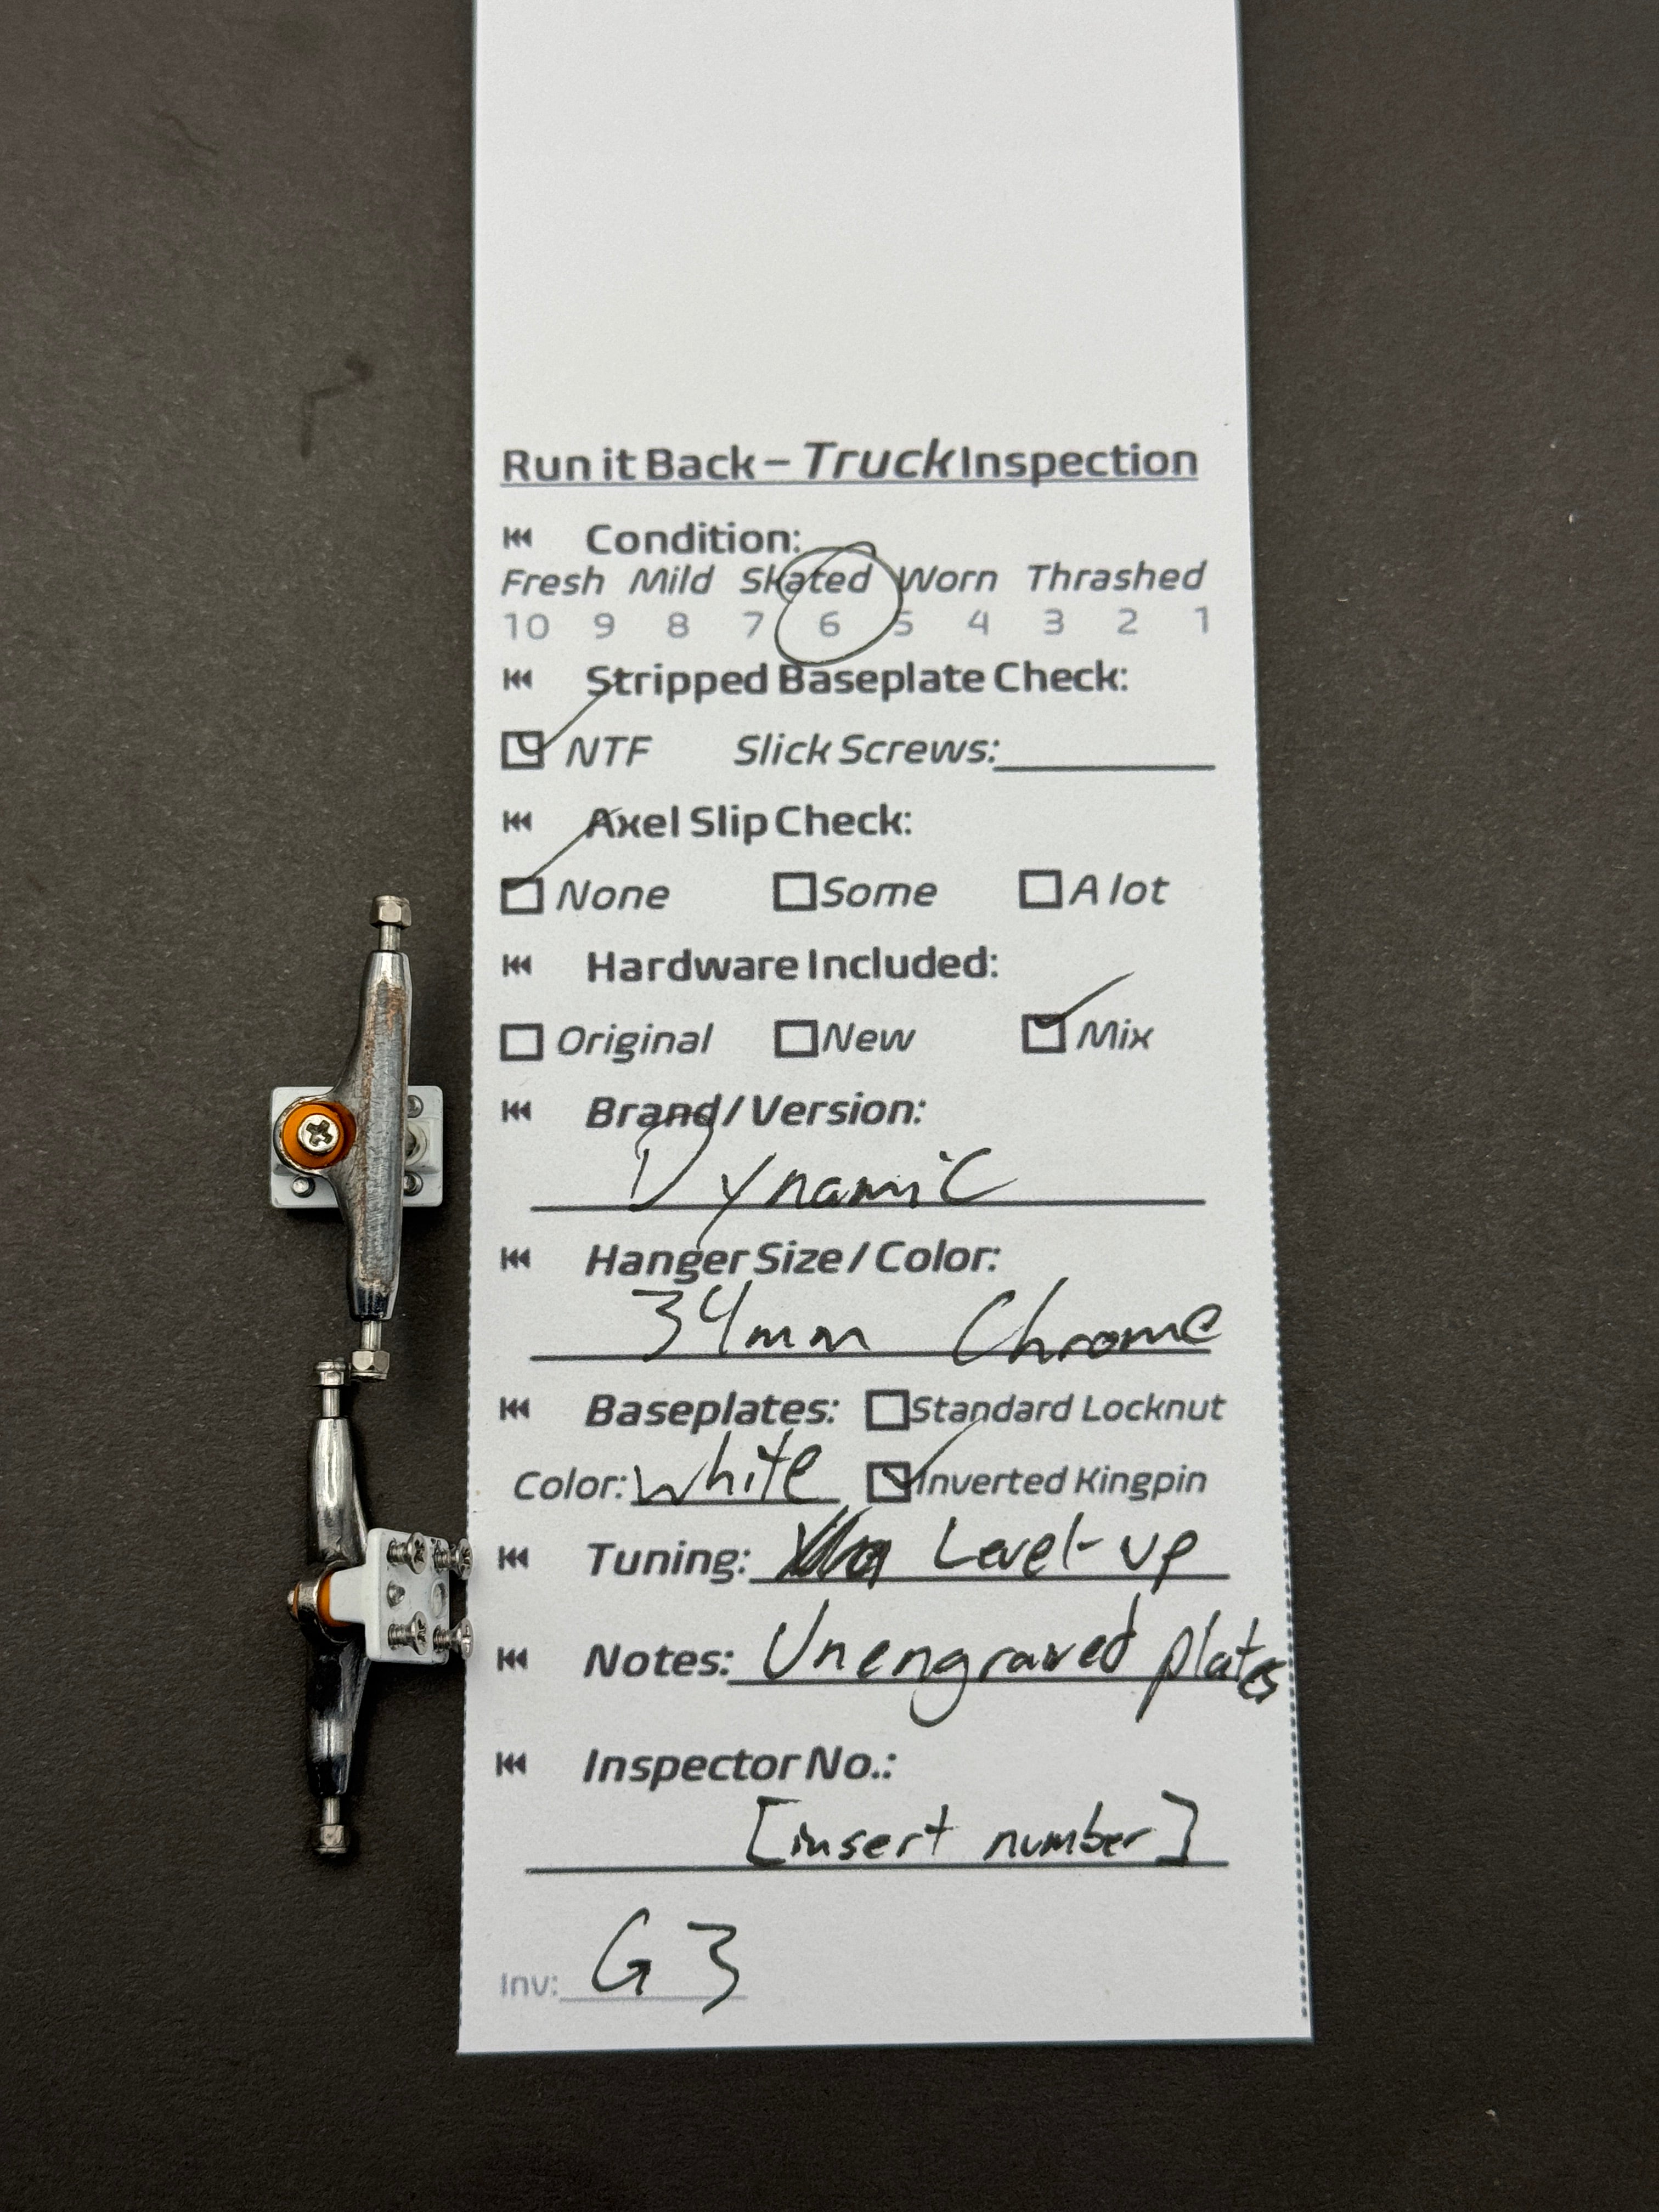 Run it Back – Truck Inspection
Condition:
Fresh Mild Skated Worn Thrashed
10 9 8 7 6 5 4 3 2 1
Stripped Baseplate Check:
NTF Slick Screws:
Axel Slip Check:
None Some A lot
Hardware Included:
Original New Mix
Brand / Version:
Dynamic
Hanger Size / Color:
34mm Chrome
Baseplates: Standard Locknut
Color: White Inverted Kingpin
Tuning: Level-up
Notes: Unengraved plates
Inspector No.:
[insert number]
Inv: G3